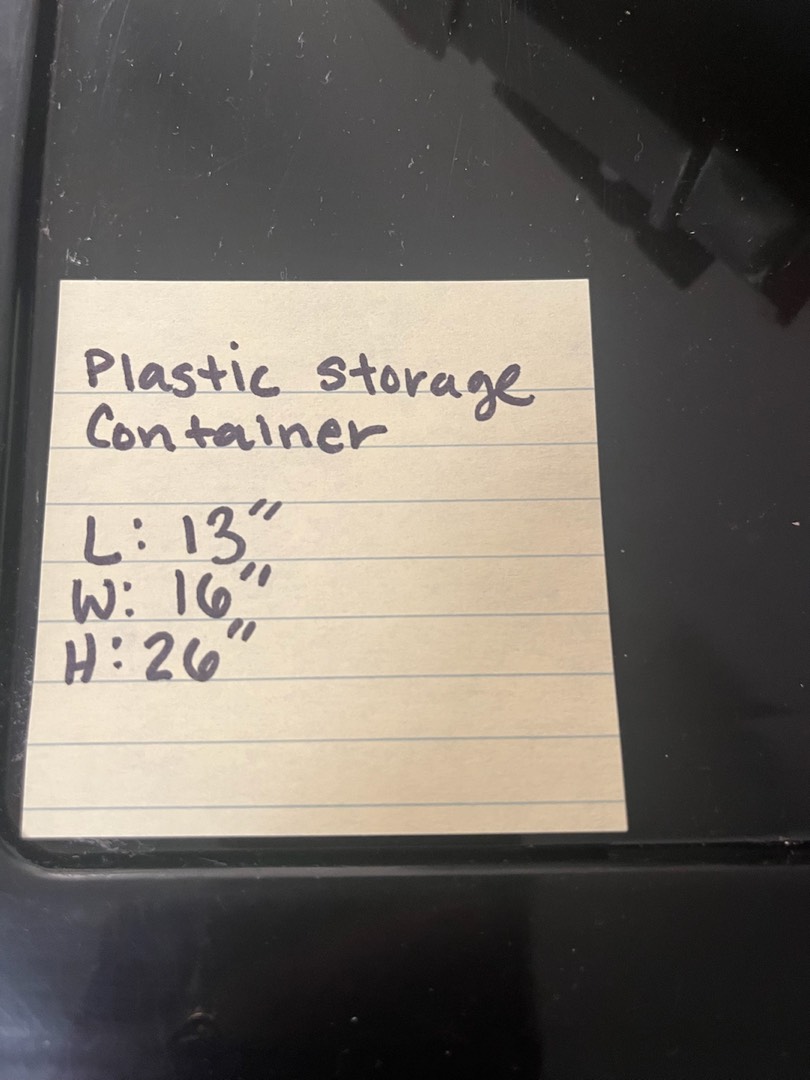 Plastic storage
Container
L: 13"
W: 16"
H: 26"